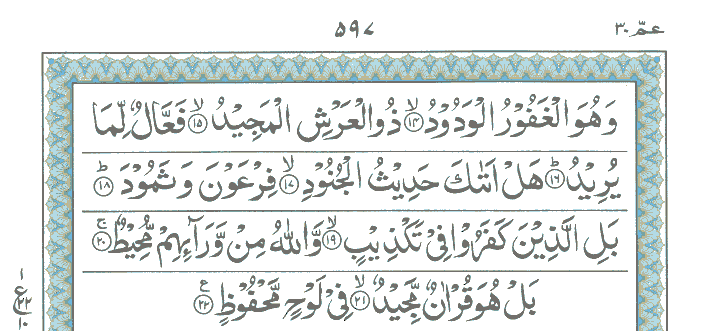 عمّ ٣٠
٥٩٧
وَهُوَ الْغَفُوْرُ الْوَدُوْدُ ۙ‏﴿۱۴﴾ ذُو الْعَرْشِ الْمَجِيْدُ ۙ‏﴿۱۵﴾ فَعَّالٌ لِّمَا
يُرِيْدُ ؕ‏﴿۱۶﴾ هَلْ اَتٰٮكَ حَدِيْثُ الْجُنُوْدِ ۙ‏﴿۱۷﴾ فِرْعَوْنَ وَثَمُوْدَ ؕ‏﴿۱۸﴾
بَلِ الَّذِيْنَ كَفَرُوْا فِىْ تَكْذِيْبٍ ۙ‏﴿۱۹﴾ وَّاللّٰهُ مِنْ وَّرَآئِهِمْ مُّحِيْطٌ ۚ‏﴿۲۰﴾
بَلْ هُوَ قُرْاٰنٌ مَّجِيْدٌ ۙ‏﴿۲۱﴾ فِىْ لَوْحٍ مَّحْفُوْظٍ ‏﴿۲۲﴾
۱
ع
۲۲
۱۰